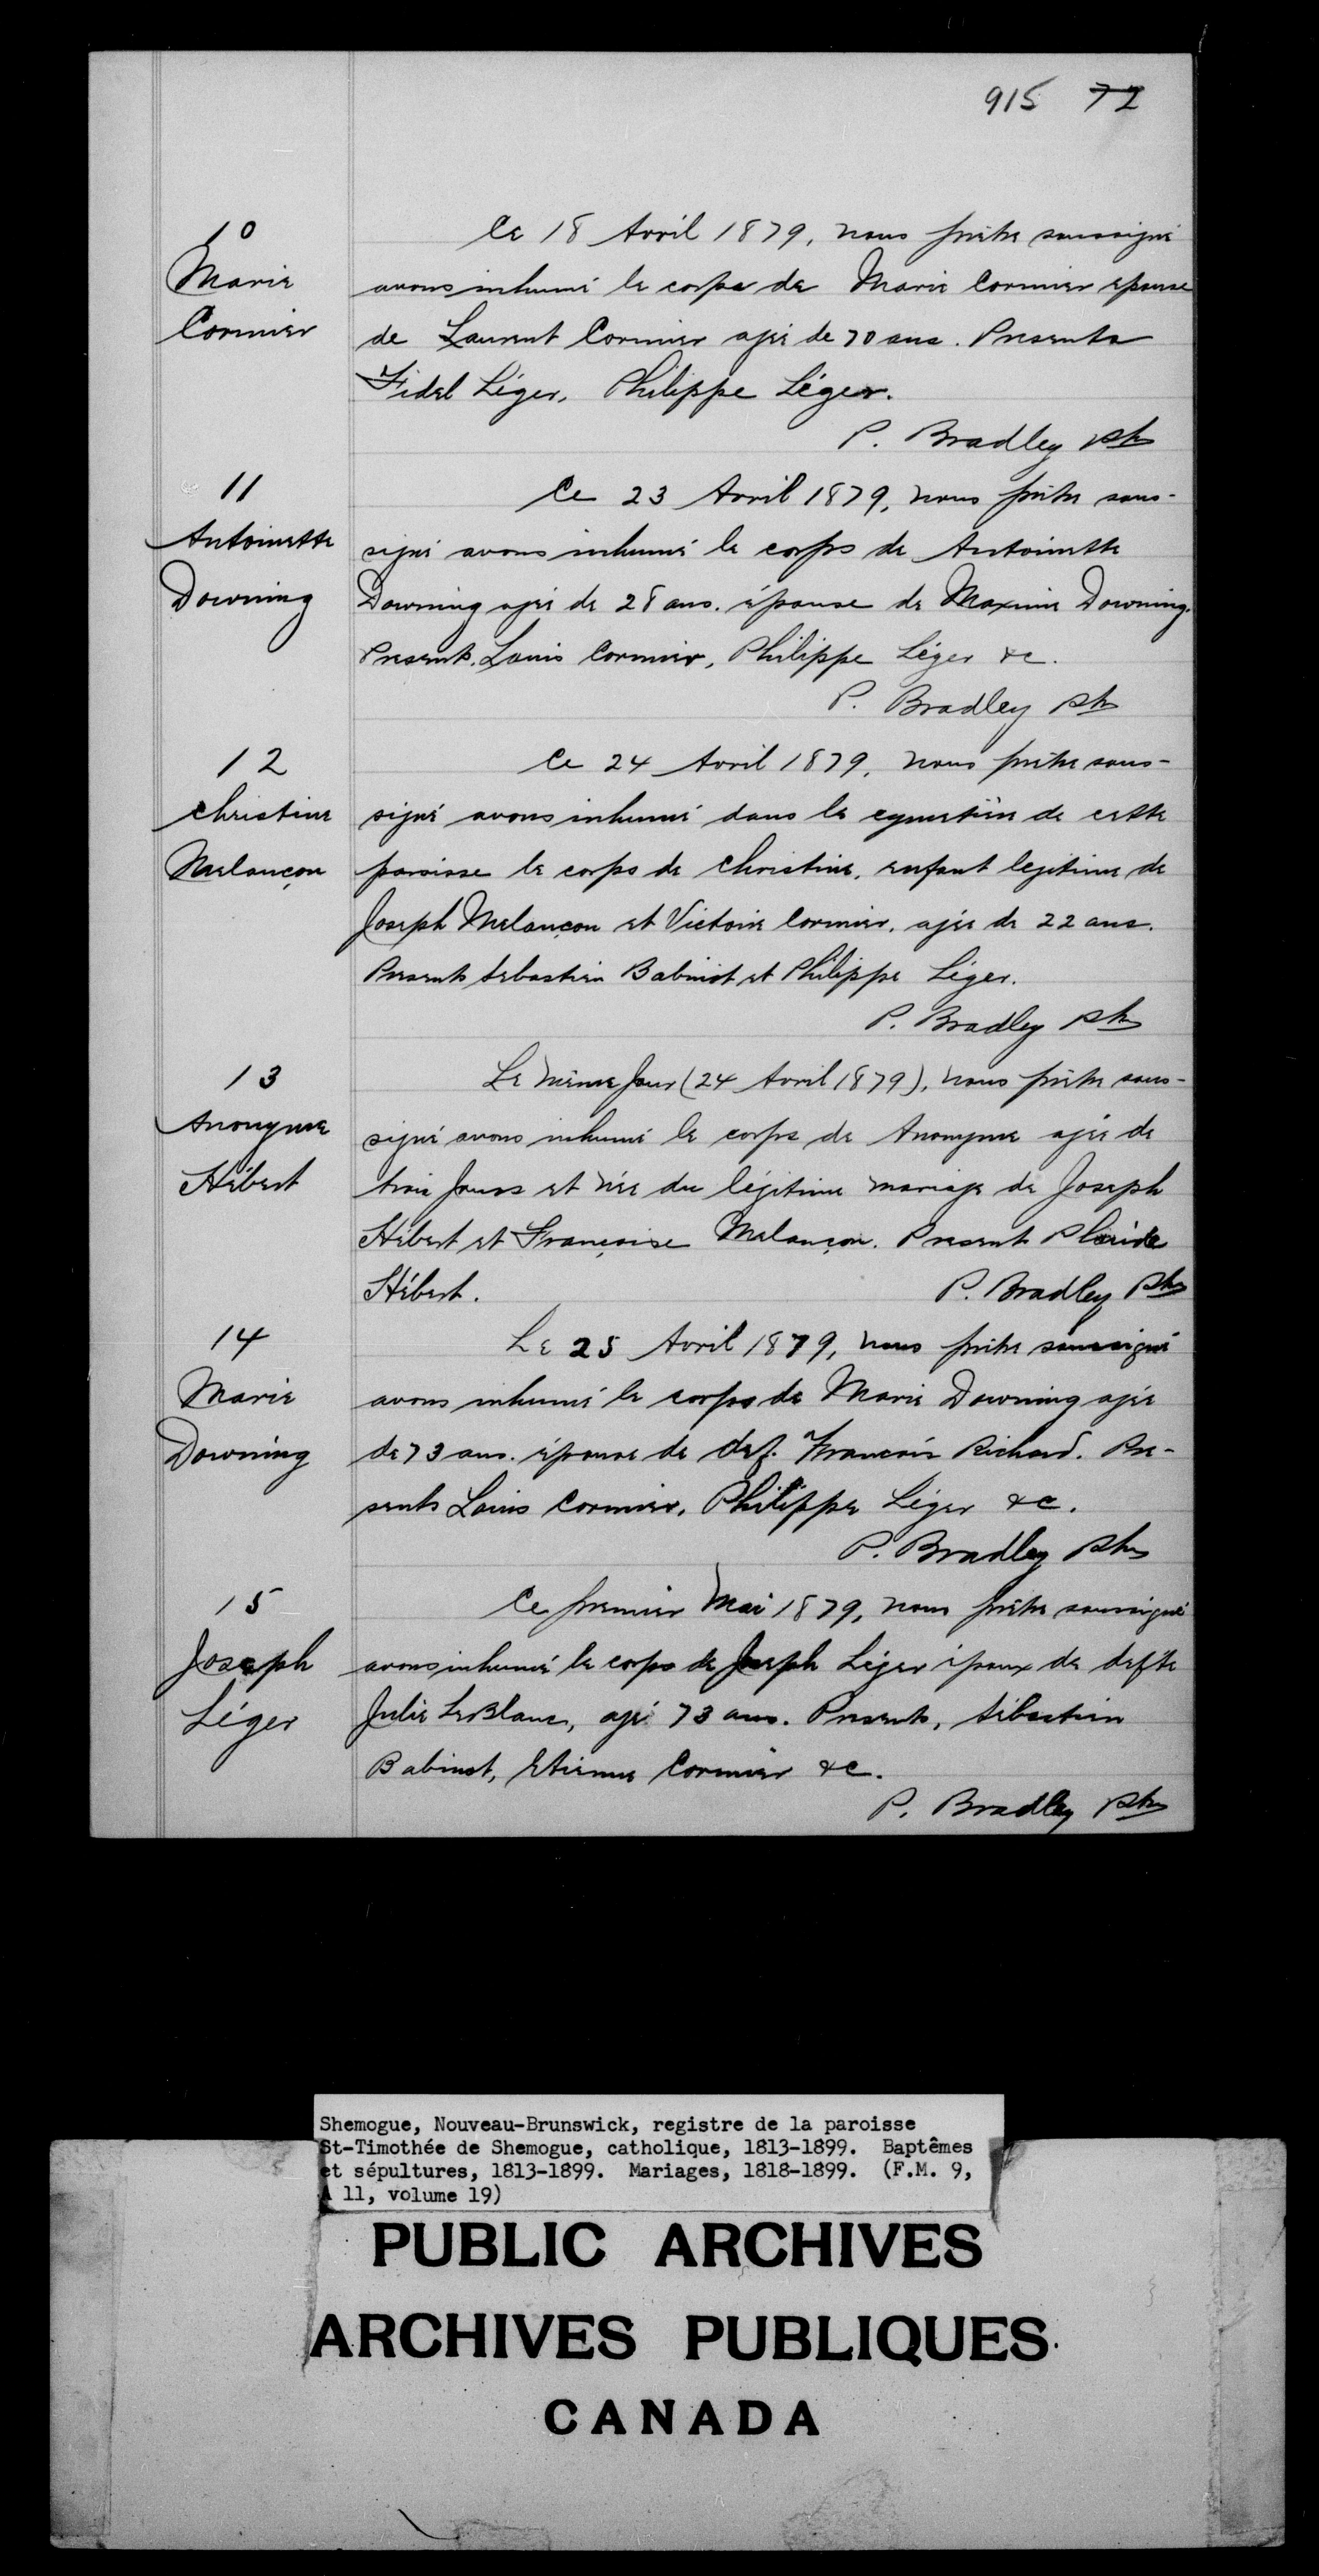 915 72
10
Marie
Cormier
Ce 18 Avril 1879, nous prêtre soussigné
avons inhumé le corps de Marie Cormier epouse
de Laurent Cormier agée de 70 ans. Presents
Fidel Léger, Philippe Léger.
P. Bradley ptre
11
Antoinette
Downing
Ce 23 Avril 1879, nous prêtre sous-
signé avons inhumé le corps de Antoinette
Downing agée de 28 ans. épouse de Maxime Downing.
Presents. Louis Cormier, Philippe Léger &c.
P. Bradley ptre
12
Christine
Melançon
Ce 24 Avril 1879, nous prêtre sous-
signé avons inhumé dans le cymetière de cette
paroisse le corps de Christine, enfant legitime de
Joseph Melançon et Victoire Cormier, agée de 22 ans.
Presents Sebastien Babinot et Philippe Léger.
P. Bradley ptre
13
Anonyme
Hébert
Le même Jour (24 Avril 1879), nous prêtre sous-
signé avons inhumé le corps de Anonyme agée de
trois jours et née du légitime mariage de Joseph
Hébert et Françoise Melançon. Present Placide
Hébert.
P. Bradley ptre
14
Marie
Downing
Le 25 Avril 1879, nous prêtre soussigné
avons inhumé le corps de Marie Downing agée
de 73 ans. épouse de def. Francois Richard. Pre-
sents Louis Cormier, Philippe Léger &c.
P. Bradley ptre
15
Joseph
Léger
Ce premier Mai 1879, nous prêtre soussigné
avons inhumé le corps de Joseph Léger époux de defte
Julie LeBlanc, agé 73 ans. Presents, Sébastien
Babinot, Etienne Cormier &c.
P. Bradley ptre
Shemogue, Nouveau-Brunswick, registre de la paroisse
St-Timothée de Shemogue, catholique, 1813-1899. Baptêmes
et sépultures, 1813-1899. Mariages, 1818-1899. (F.M. 9,
A 11, volume 19)
PUBLIC ARCHIVES
ARCHIVES PUBLIQUES
CANADA